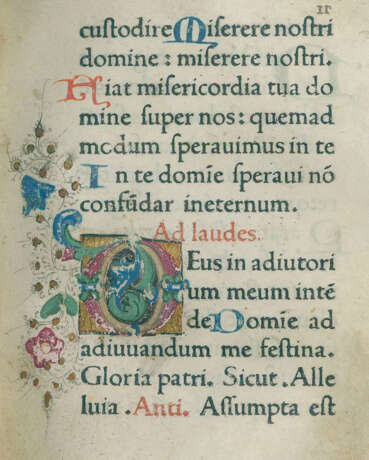 11
custodire Miserere nostri
domine : miserere nostri.
Fiat misericordia tua do
mine super nos: quemad
modum sperauimus in te
In te domīe speraui nō
confūdar ineternum.
Ad laudes.
Deus in adiutori
um meum intē
de Domīe ad
adiuuandum me festina.
Gloria patri. Sicut. Alle
luia. Anti. Assumpta est